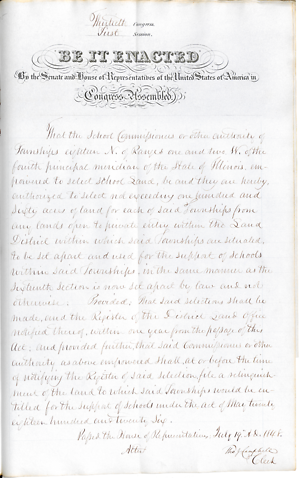 Thirtieth Congress
First Session,
BE IT ENACTED
By the Senate and House of Representatives of the United States of America in
Congress Assembled
That the School Commissioners or other authority of
Townships eighteen N. of Ranges one and two W. of the
fourth principal meridian of the State of Illinois, em-
powered to select school land, be and they are hereby
authorized to select not exceeding one hundred and
sixty acres of land for each of said Townships from
any lands open to private entry within the Land
District within which said Townships are situated,
to be set apart and used for the support of schools
within said Townships, in the same manner as the
sixteenth section is now set apart by law and not
otherwise. Provided, That said selections shall be
made, and the Register of the District Land Office
notified thereof, within one year from the passage of this
Act, and provided further, that said Commissioners or other
authority as above empowered shall, at or before the time
of notifying the Register of said selection, file a relinquish-
ment of the land to which said Townships would be en-
titled for the support of schools under the act of May twenty
eighteen hundred and twenty six.
Passed the House of Representatives, July 19th A.D. 1848.
Attest
Clerk